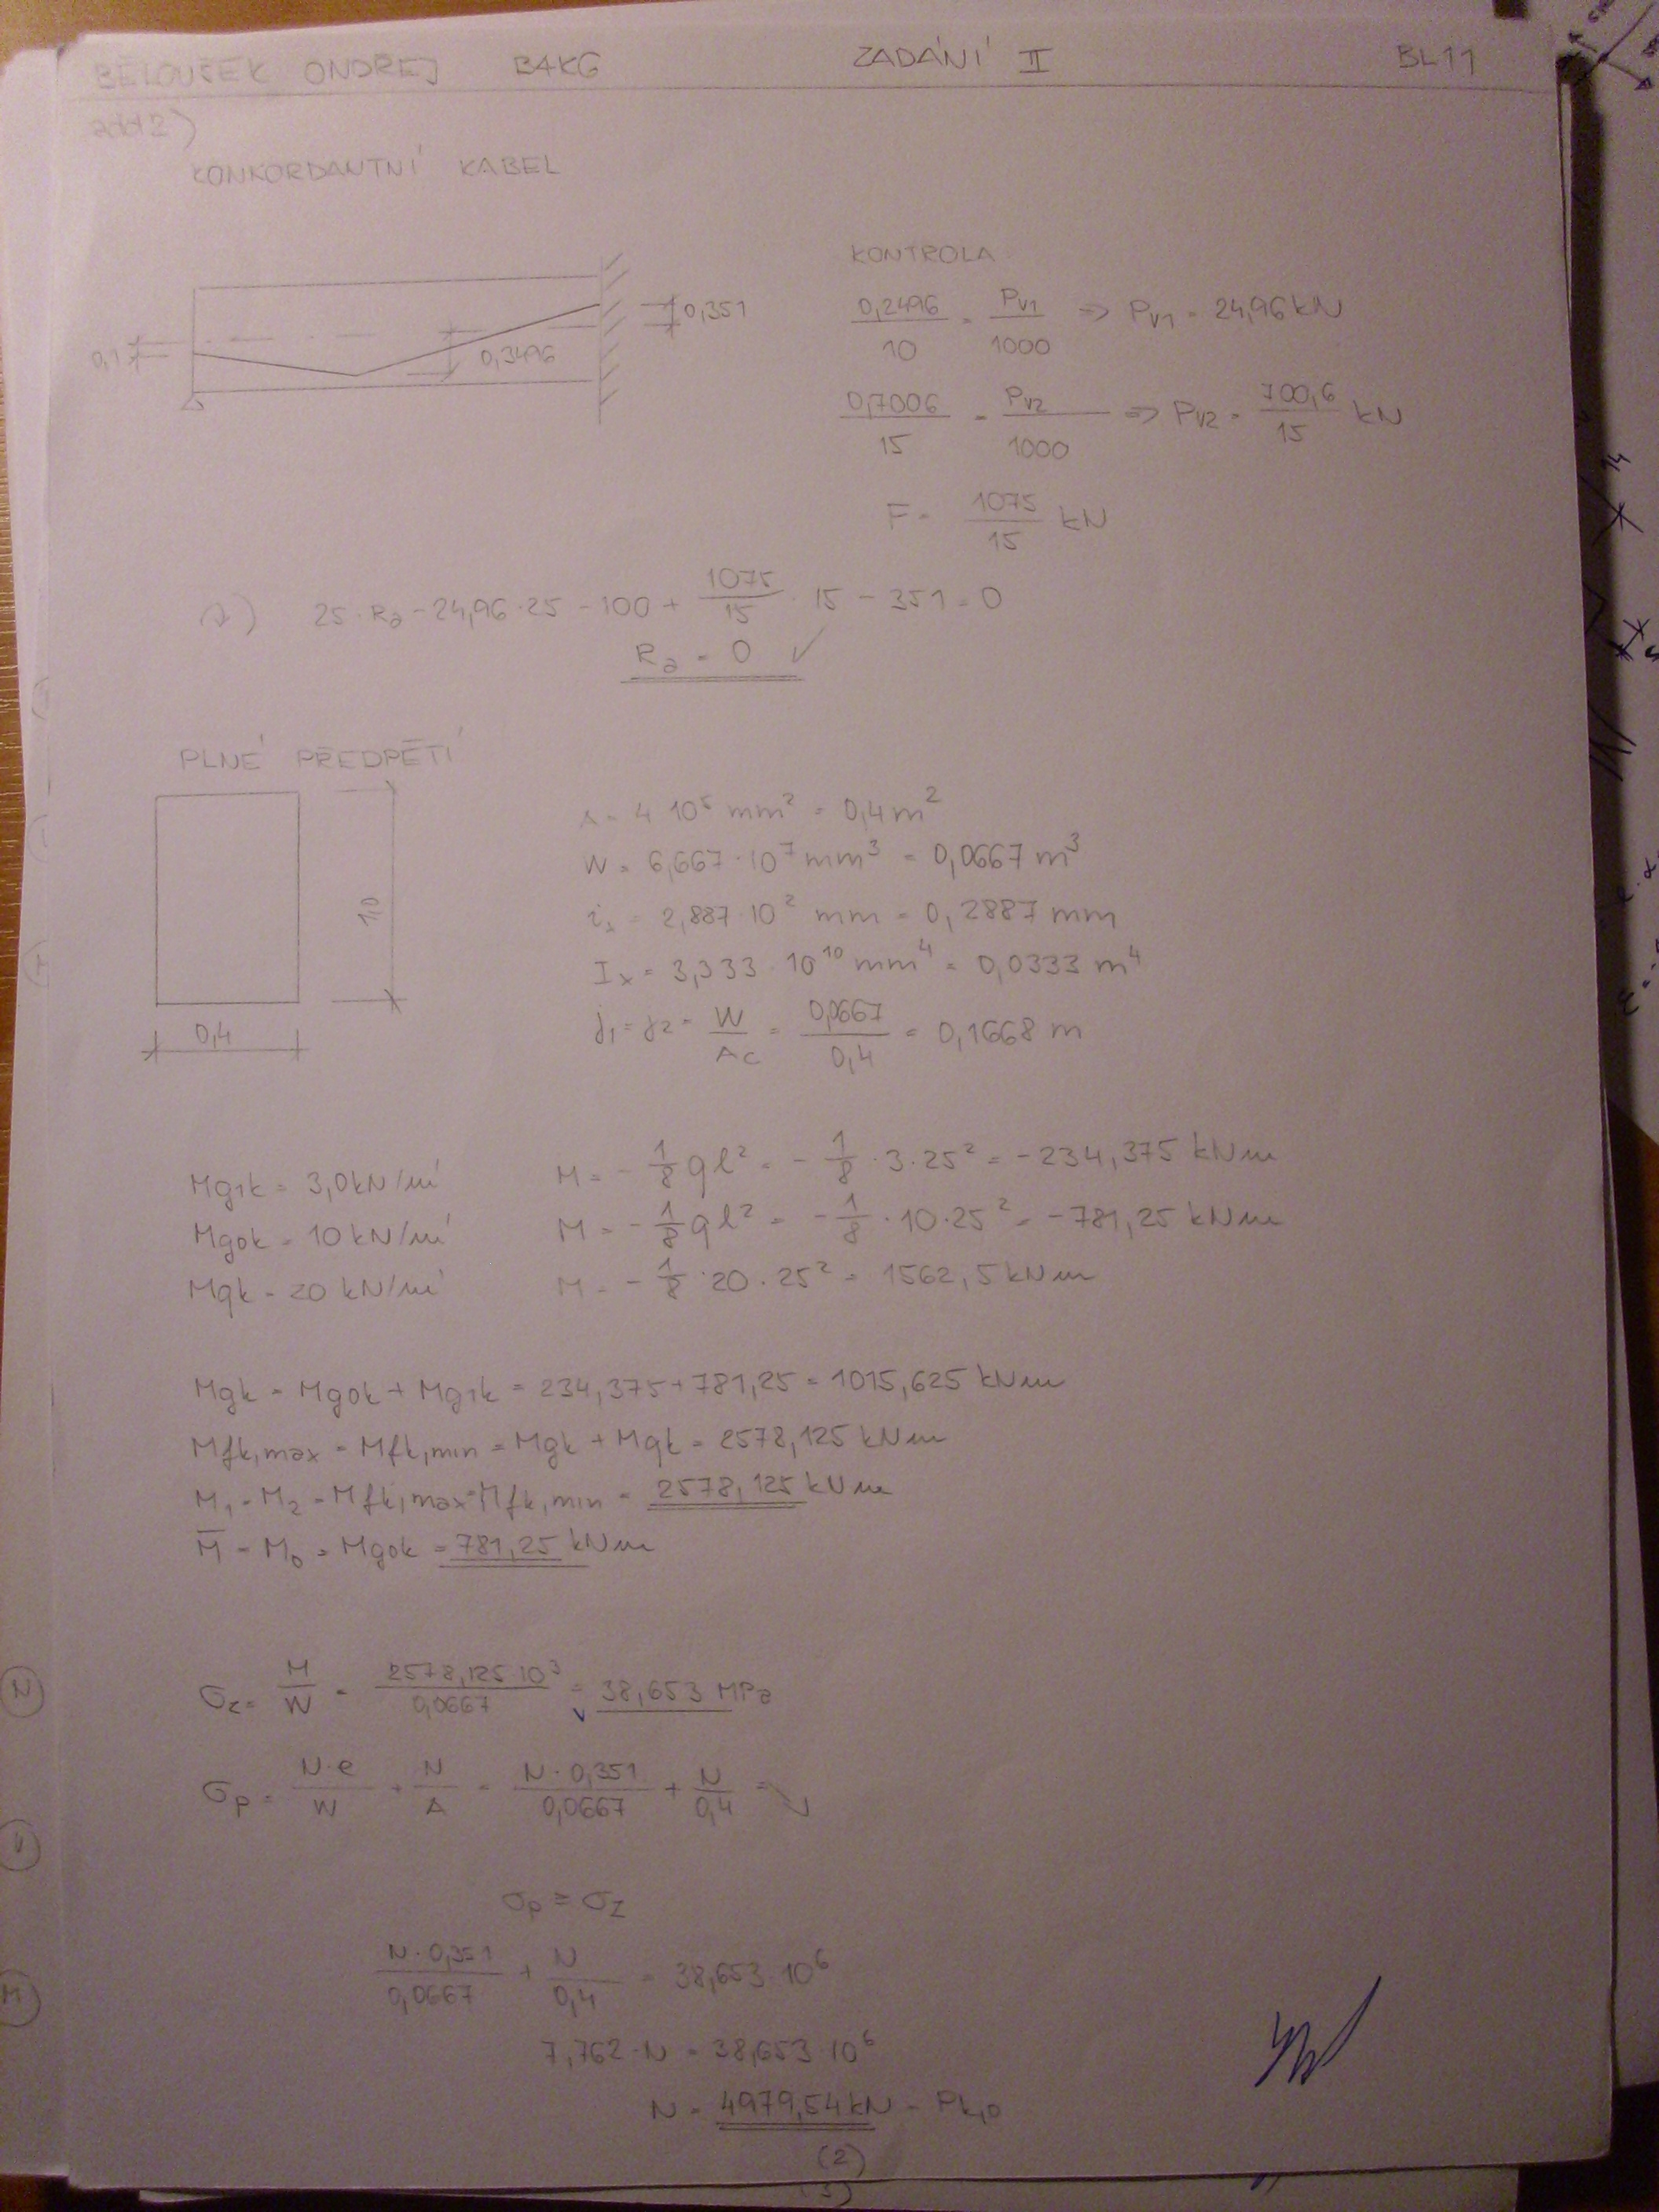 BĚLOUŠEK ONDŘEJ B4K6 ZADÁNÍ II BL11
add2)
KONKORDANTNÍ KABEL
0,1
0,3496
0,351
KONTROLA
0,2496/10 = Pv1/1000 => Pv1 = 24,96 kN
0,7006/15 = Pv2/1000 => Pv2 = 700,6/15 kN
F = 1075/15 kN
25·Ra - 24,96·25 - 100 + 1075/15 · 15 - 351 = 0
Ra = 0 ✓
PLNÉ PŘEDPĚTÍ
1,0
0,4
A = 4 10⁵ mm² = 0,4 m²
W = 6,667·10⁷ mm³ = 0,0667 m³
ix = 2,887·10² mm = 0,2887 mm
Ix = 3,333·10¹⁰ mm⁴ = 0,0333 m⁴
j1 = j2 = W/Ac = 0,0667/0,4 = 0,1668 m
Mg1k = 3,0 kN/m' M = - 1/8 ql² = - 1/8 ·3·25² = -234,375 kNm
Mg0k = 10 kN/m' M = - 1/8 ql² = - 1/8 ·10·25² = -781,25 kNm
Mqk = 20 kN/m' M = - 1/8 ·20·25² = 1562,5 kNm
Mgk = Mg0k + Mg1k = 234,375 + 781,25 = 1015,625 kNm
Mfk,max = Mfk,min = Mgk + Mqk = 2578,125 kNm
M1 = M2 = Mfk,max = Mfk,min = 2578,125 kNm
M̄ = M0 = Mg0k = 781,25 kNm
σz = M/W = 2578,125·10³/0,0667 = 38,653 MPa
σp = N·e/W + N/A = N·0,351/0,0667 + N/0,4 =
σp = σz
N·0,351/0,0667 + N/0,4 = 38,653·10⁶
7,762·N = 38,653·10⁶
N = 4979,54 kN = Pk,0
(2)
(3)